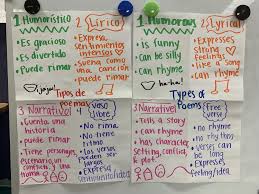 1 Humorístico
• Es gracioso
• Es divertido
• Puede rimar
¡jaja!
2 Lírico
• Expresa
sentimientos
intensos
• Suena como
una canción
• puede rimar
Tipos de
poemas
3 Narrativo
• Cuenta una
historia
• puede rimar
• Tiene personajes,
escenario, un
conflicto, y una
trama
4 verso
libre
• No rima
• No tiene
ritmo
• los versos
pueden ser
largos
• Expresa
sentimiento/idea
1 Humorous
• is funny
• Can be silly
• can rhyme
ha-ha!
2 Lyrical
• Expresses
strong
feelings
• Sounds
like a song
• Can rhyme
Types of
Poems
3 Narrative
• Tells a Story
• can rhyme
• has character,
setting, conflict,
& plot.
4 Free
verse
• no rhyme
• no rhythm
• verses can
be long
• Expresses
feeling/idea